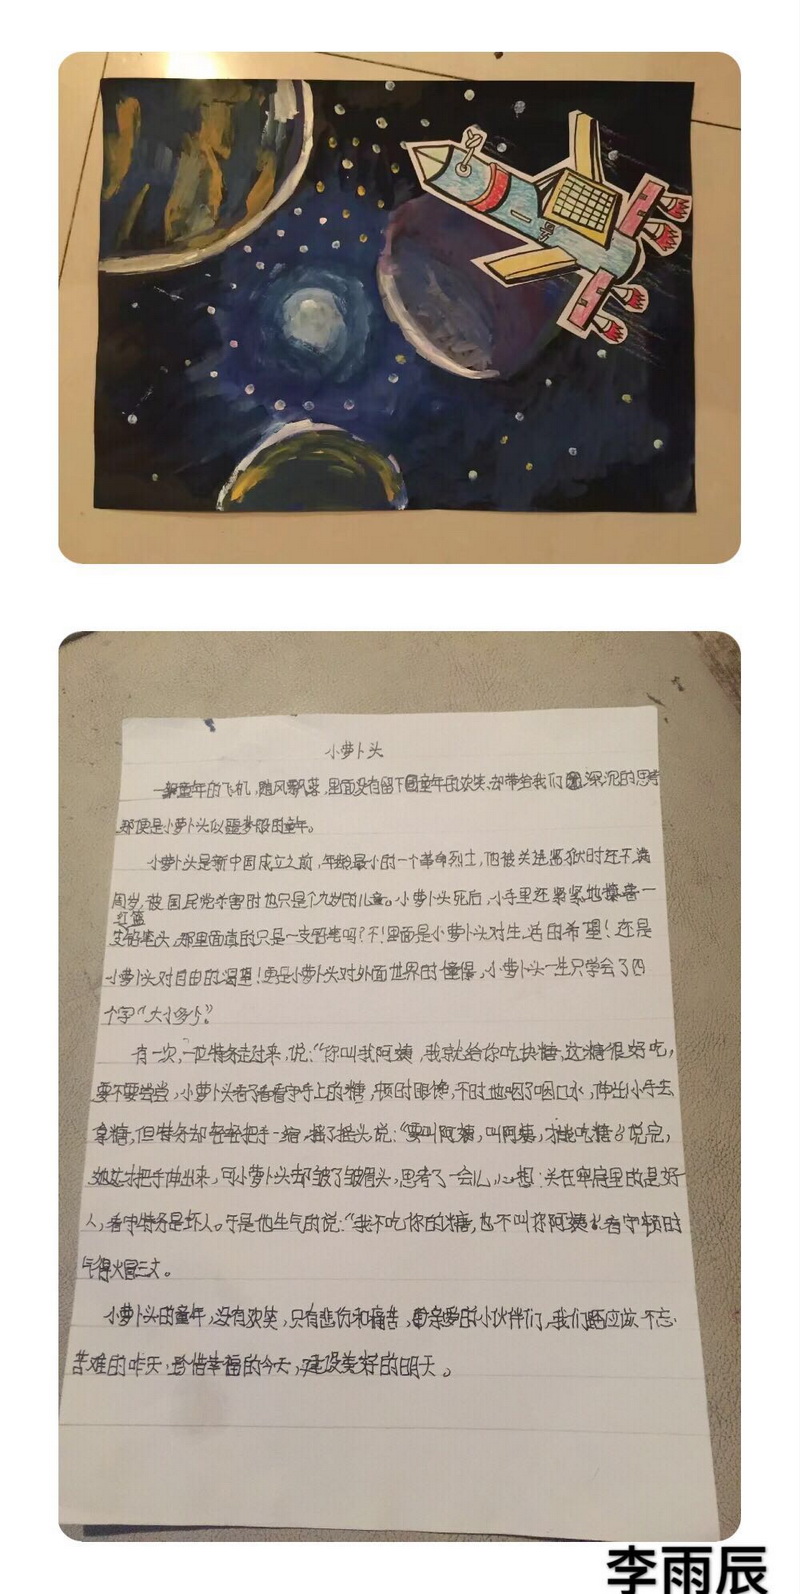 小萝卜头
一架童年的飞机,随风飘落,里面没有留下童年的欢笑,却带给我们深沉的思考
那便是小萝卜头似噩梦般的童年。
小萝卜头是新中国成立之前,年龄最小的一个革命烈士,他被关进监狱时还不满
周岁,被国民党杀害时也只是个九岁的儿童。小萝卜头死后,小手里还紧紧地攥着一
红蓝
支铅笔头,那里面真的只是一支铅笔吗?不!里面是小萝卜头对生活的希望!还是
小萝卜头对自由的渴望!更是小萝卜头对外面世界的憧憬,小萝卜头一生只学会了四
个字“大小多少”。
有一次,一位特务走过来,说:“你叫我阿姨,我就给你吃块糖,这糖很好吃,
要不要尝尝,小萝卜头看了看看守手上的糖,顿时眼馋,不时地咽了咽口水,伸出小手去
拿糖,但特务却轻轻把手一缩,摇了摇头,说:“要叫阿姨,叫阿姨,才能吃糖。”说完,
她这才把手伸出来,可小萝卜头却皱了皱眉头,思考了一会儿,心想:关在牢房里的是好
人,看守特务是坏人。于是他生气的说:“我不吃你的糖,也不叫你阿姨。”看守顿时
气得火冒三丈。
小萝卜头的童年,没有欢笑,只有悲伤和痛苦,亲爱的小伙伴们,我们应该不忘
苦难的昨天,珍惜幸福的今天,建设美好的明天。
李雨辰